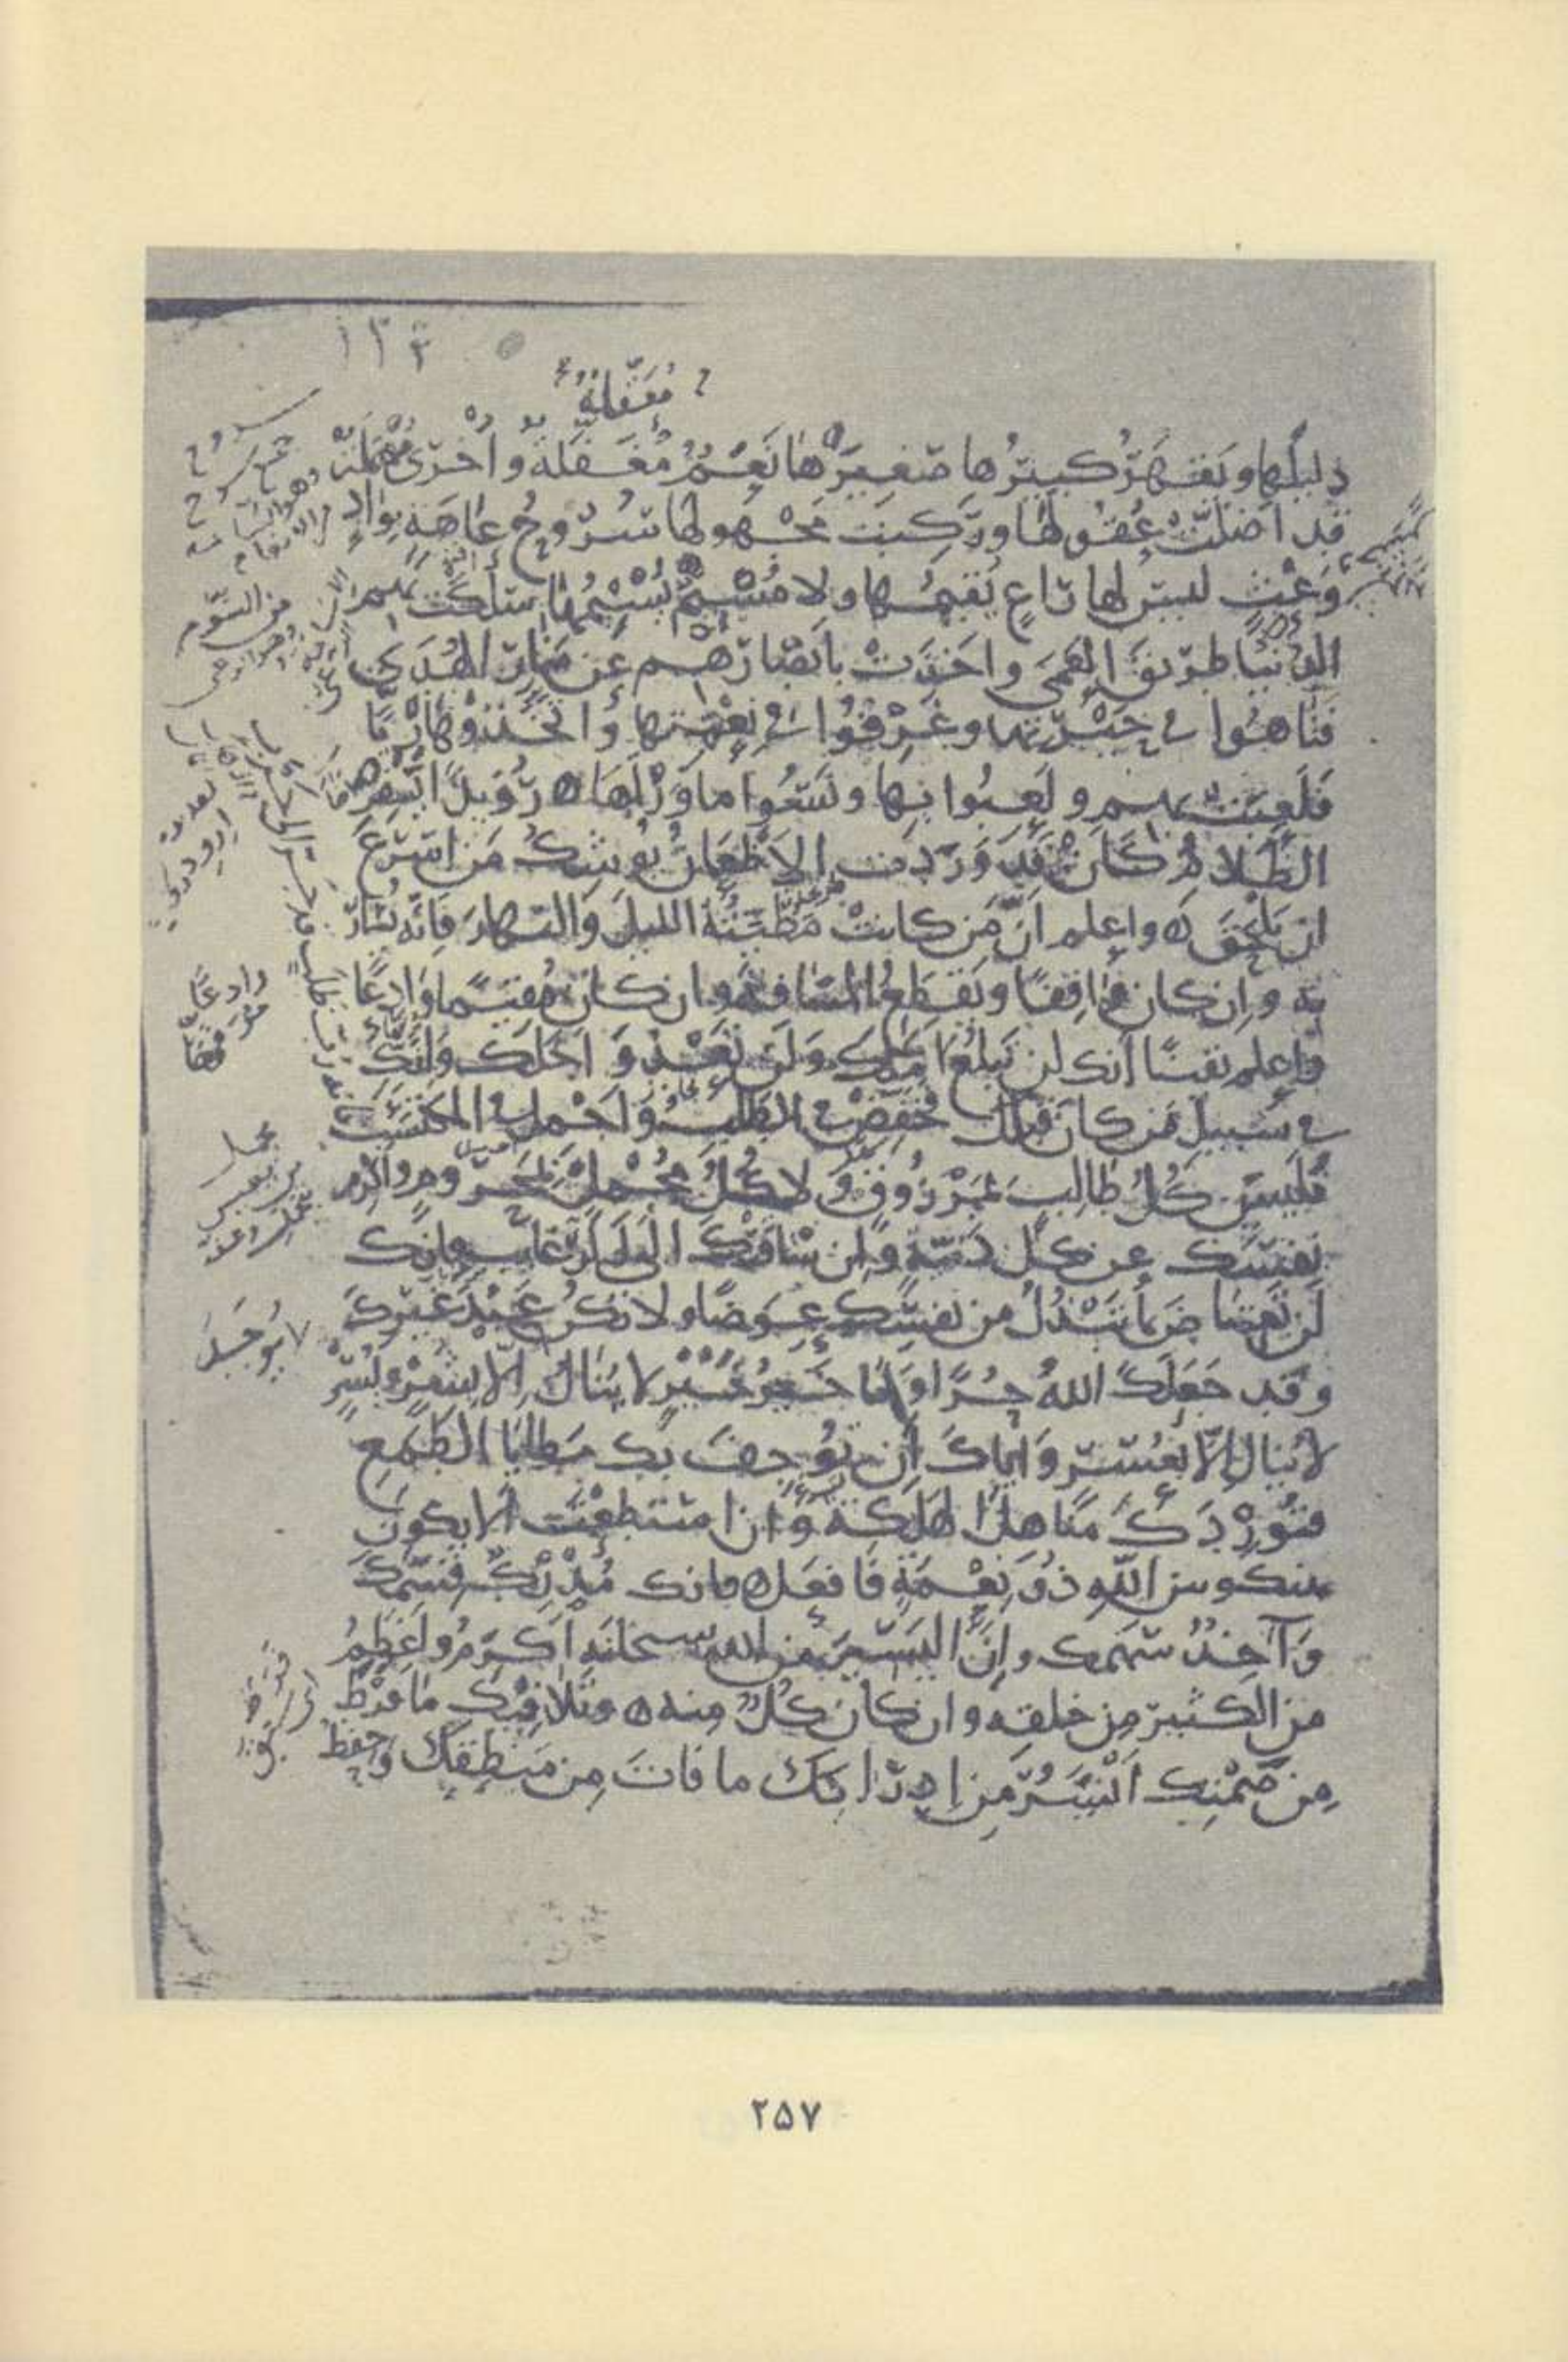 ١٣٤
مُعَقَّلةٌ
ذليلَها ويَقهَرُ كبيرُها صَغيرَها نَعَمٌ مُعَقَّلَةٌ وأُخْرَى مُهْمَلَةٌ
قد أضلّتْ عُقولها ورَكِبَت مَجْهولَها سُروحُ عَاهَةٍ بِوَادٍ
وَعْثٍ ليسَ لها رَاعٍ يُقيمُها ولا مُسيمٌ يُسيمُها سَلَكَت بهم
الدُّنيا طريقَ العَمَى وأخَذَتْ بأبْصَارِهم عن مَنارِ الهُدَى
فتَاهُوا في حَيْرَتِها وغَرِقُوا في نِعْمَتِها واتَّخَذُوهَا رَبًّا
فَلَعِبَتْ بِهم ولَعِبُوا بها ونَسُوا ما وَرَاءَها ه رُوَيدًا يُسْفِرُ
الظَّلامُ كَأَن قَد وَرَدَت الأظْعَانُ يُوشِكُ مَن أسْرَعَ
أن يَلْحَقَ ه واعلم أنَّ مَن كانتْ مَطِيَّتُهُ الليلَ والنهارَ فإنّه يُسَارُ
به وإن كان وَاقِفًا ويَقْطَعُ المَسَافةَ وإن كانَ مُقيمًا وَادِعًا
واعلم يقينًا أنك لن تَبلُغَ أملَك ولَن تَعْدُوَ أجَلَك وأنَّك
في سَبيلِ مَن كانَ قَبلَك فخَفِّضْ في الطَّلَبِ وأجْمِل في المكتسَبِ
فليسَ كُلُّ طالِبٍ بمَرْزُوقٍ ولا كُلُّ مُجْمِلٍ بمَحْرُومٍ وأكرِم
نفسَك عن كلّ دَنيّةٍ وإن سَاقَتْكَ إلى الرَّغائبِ فإنك
لَن تَعتاضَ بما تَبْذُلُ من نفسِك عِوَضًا ولا تكن عَبْدَ غيرِكَ
وقد جَعَلَكَ اللهُ حُرًّا وَمَا خَيرُ خَيْرٍ لا يُنَالُ إلّا بِشَرٍّ ويُسْرٍ
لا يُنالُ إلّا بعُسْرٍ وإيّاكَ أن تُوجِفَ بك مَطايَا الطَّمَعِ
فتُورِدَكَ مَناهلَ الهَلَكَةِ وَإن استطعْتَ ألّا يكونَ
بينك وبين اللهِ ذُو نِعْمَةٍ فافعَل ه فإنك مُدْرِكٌ قِسْمَكَ
وَآخِذٌ سَهْمَك وإنَّ اليَسِيرَ من الله سبحانَه أَكْرَمُ وأعْظَمُ
من الكثيرِ مِن خلقِه وإن كانَ كُلٌّ منه ه وتَلافِيكَ ما فَرَطَ
مِن صَمْتِك أَيْسَرُ مِن إدرَاكِك ما فَاتَ مِن مَنطِقِك وَحِفظُ
من السَّوم
وادعًا
٢٥٧